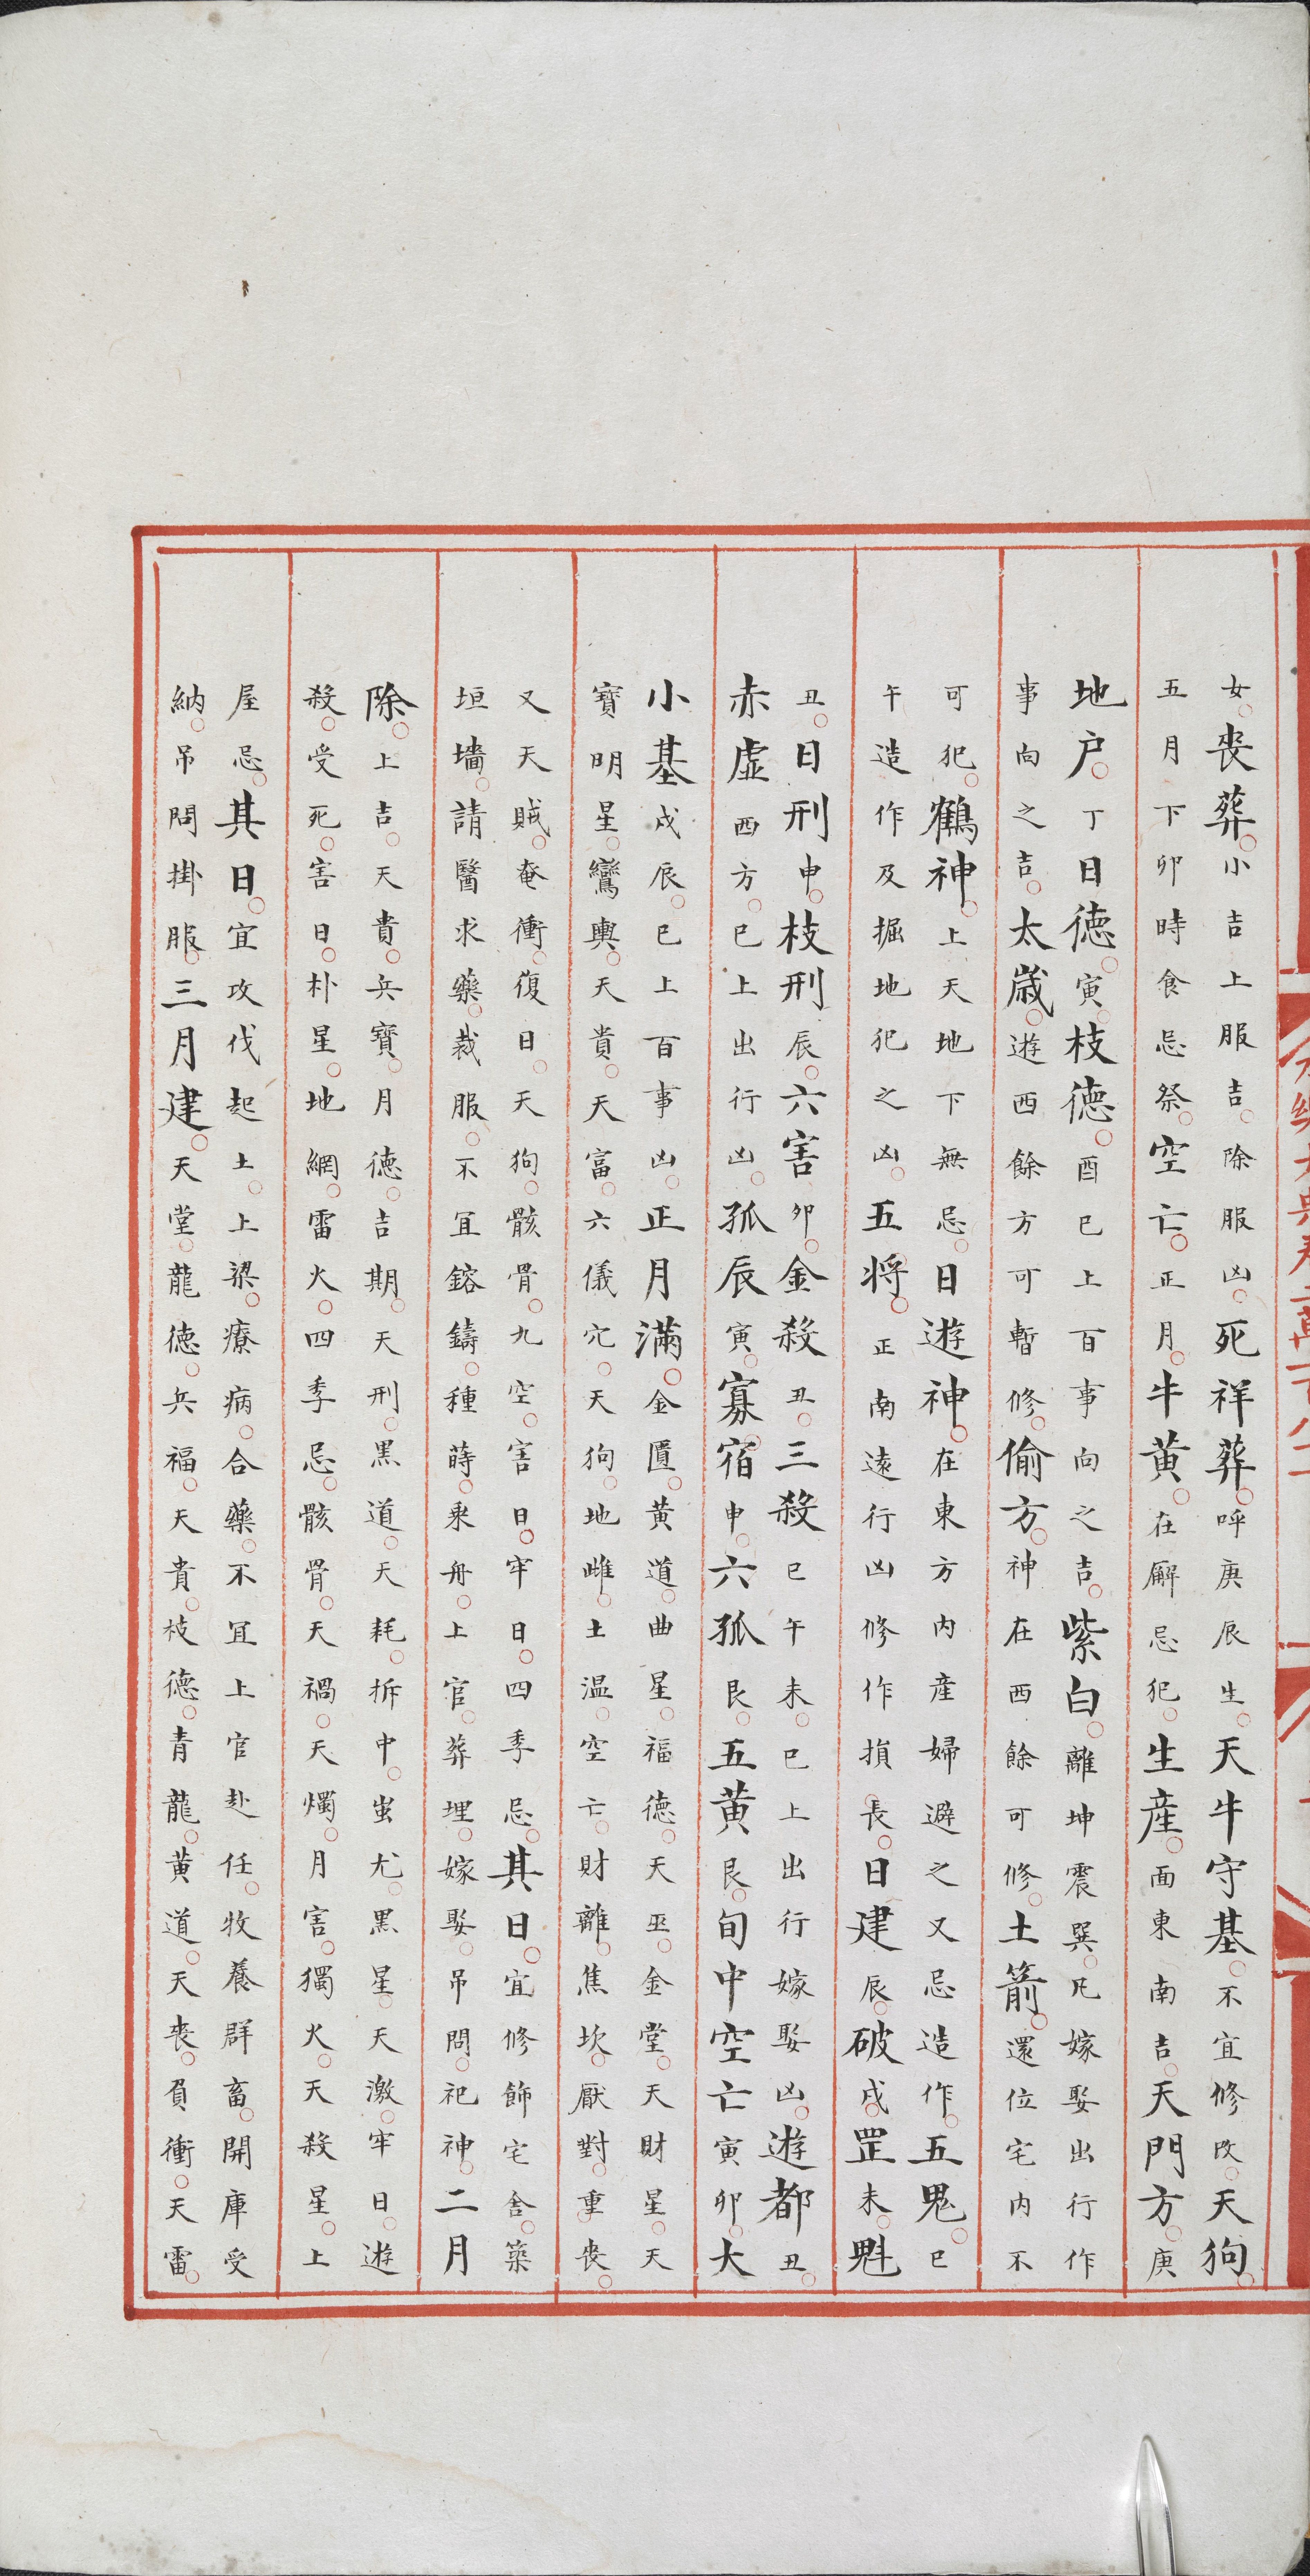 女喪葬小吉上服吉除服凶死祥葬呼庚辰生天牛守墓不宜修改天狗
五月下卯時食忌祭空亡正月牛黄在廨忌犯生産面東南吉天門方庚
地户丁日德寅枝德酉巳上百事向之吉紫白離坤震巽凡嫁娶出行作
事向之吉太嵗遊西餘方可暫修偷方神在西餘可修土箭還位宅内不
可犯鶴神上天地下無忌日遊神在東方内産婦避之又忌造作五鬼巳
午造作及掘地犯之凶五将正南遠行凶修作損長日建辰破戌罡未魁
丑日刑申枝刑辰六害卯金殺丑三殺巳午未巳上出行嫁娶凶遊都丑
赤虚西方巳上出行凶孤辰寅寡宿申六孤艮五黄艮旬中空亡寅卯大
小墓戌辰巳上百事凶正月滿金匱黄道曲星福德天巫金堂天財星天
寶明星鸞輿天貴天富六儀穴天狗地雌土温空亡財離焦坎厭對重喪
又天賊奄衝復日天狗骸骨九空害日牢日四季忌其日宜修飾宅舍築
垣墻請醫求藥裁服不宜鎔鑄種蒔乘舟上官葬埋嫁娶吊問祀神二月
除上吉天貴兵寶月德吉期天刑黑道天耗拆中蚩尤黑星天激牢日遊
殺受死害日朴星地網雷火四季忌骸骨天禍天燭月害獨火天殺星上
屋忌其日宜攻伐起土上梁療病合藥不宜上官赴任牧養群畜開庫受
納吊問掛服三月建天堂龍德兵福天貴枝德青龍黄道天喪負衝天雷